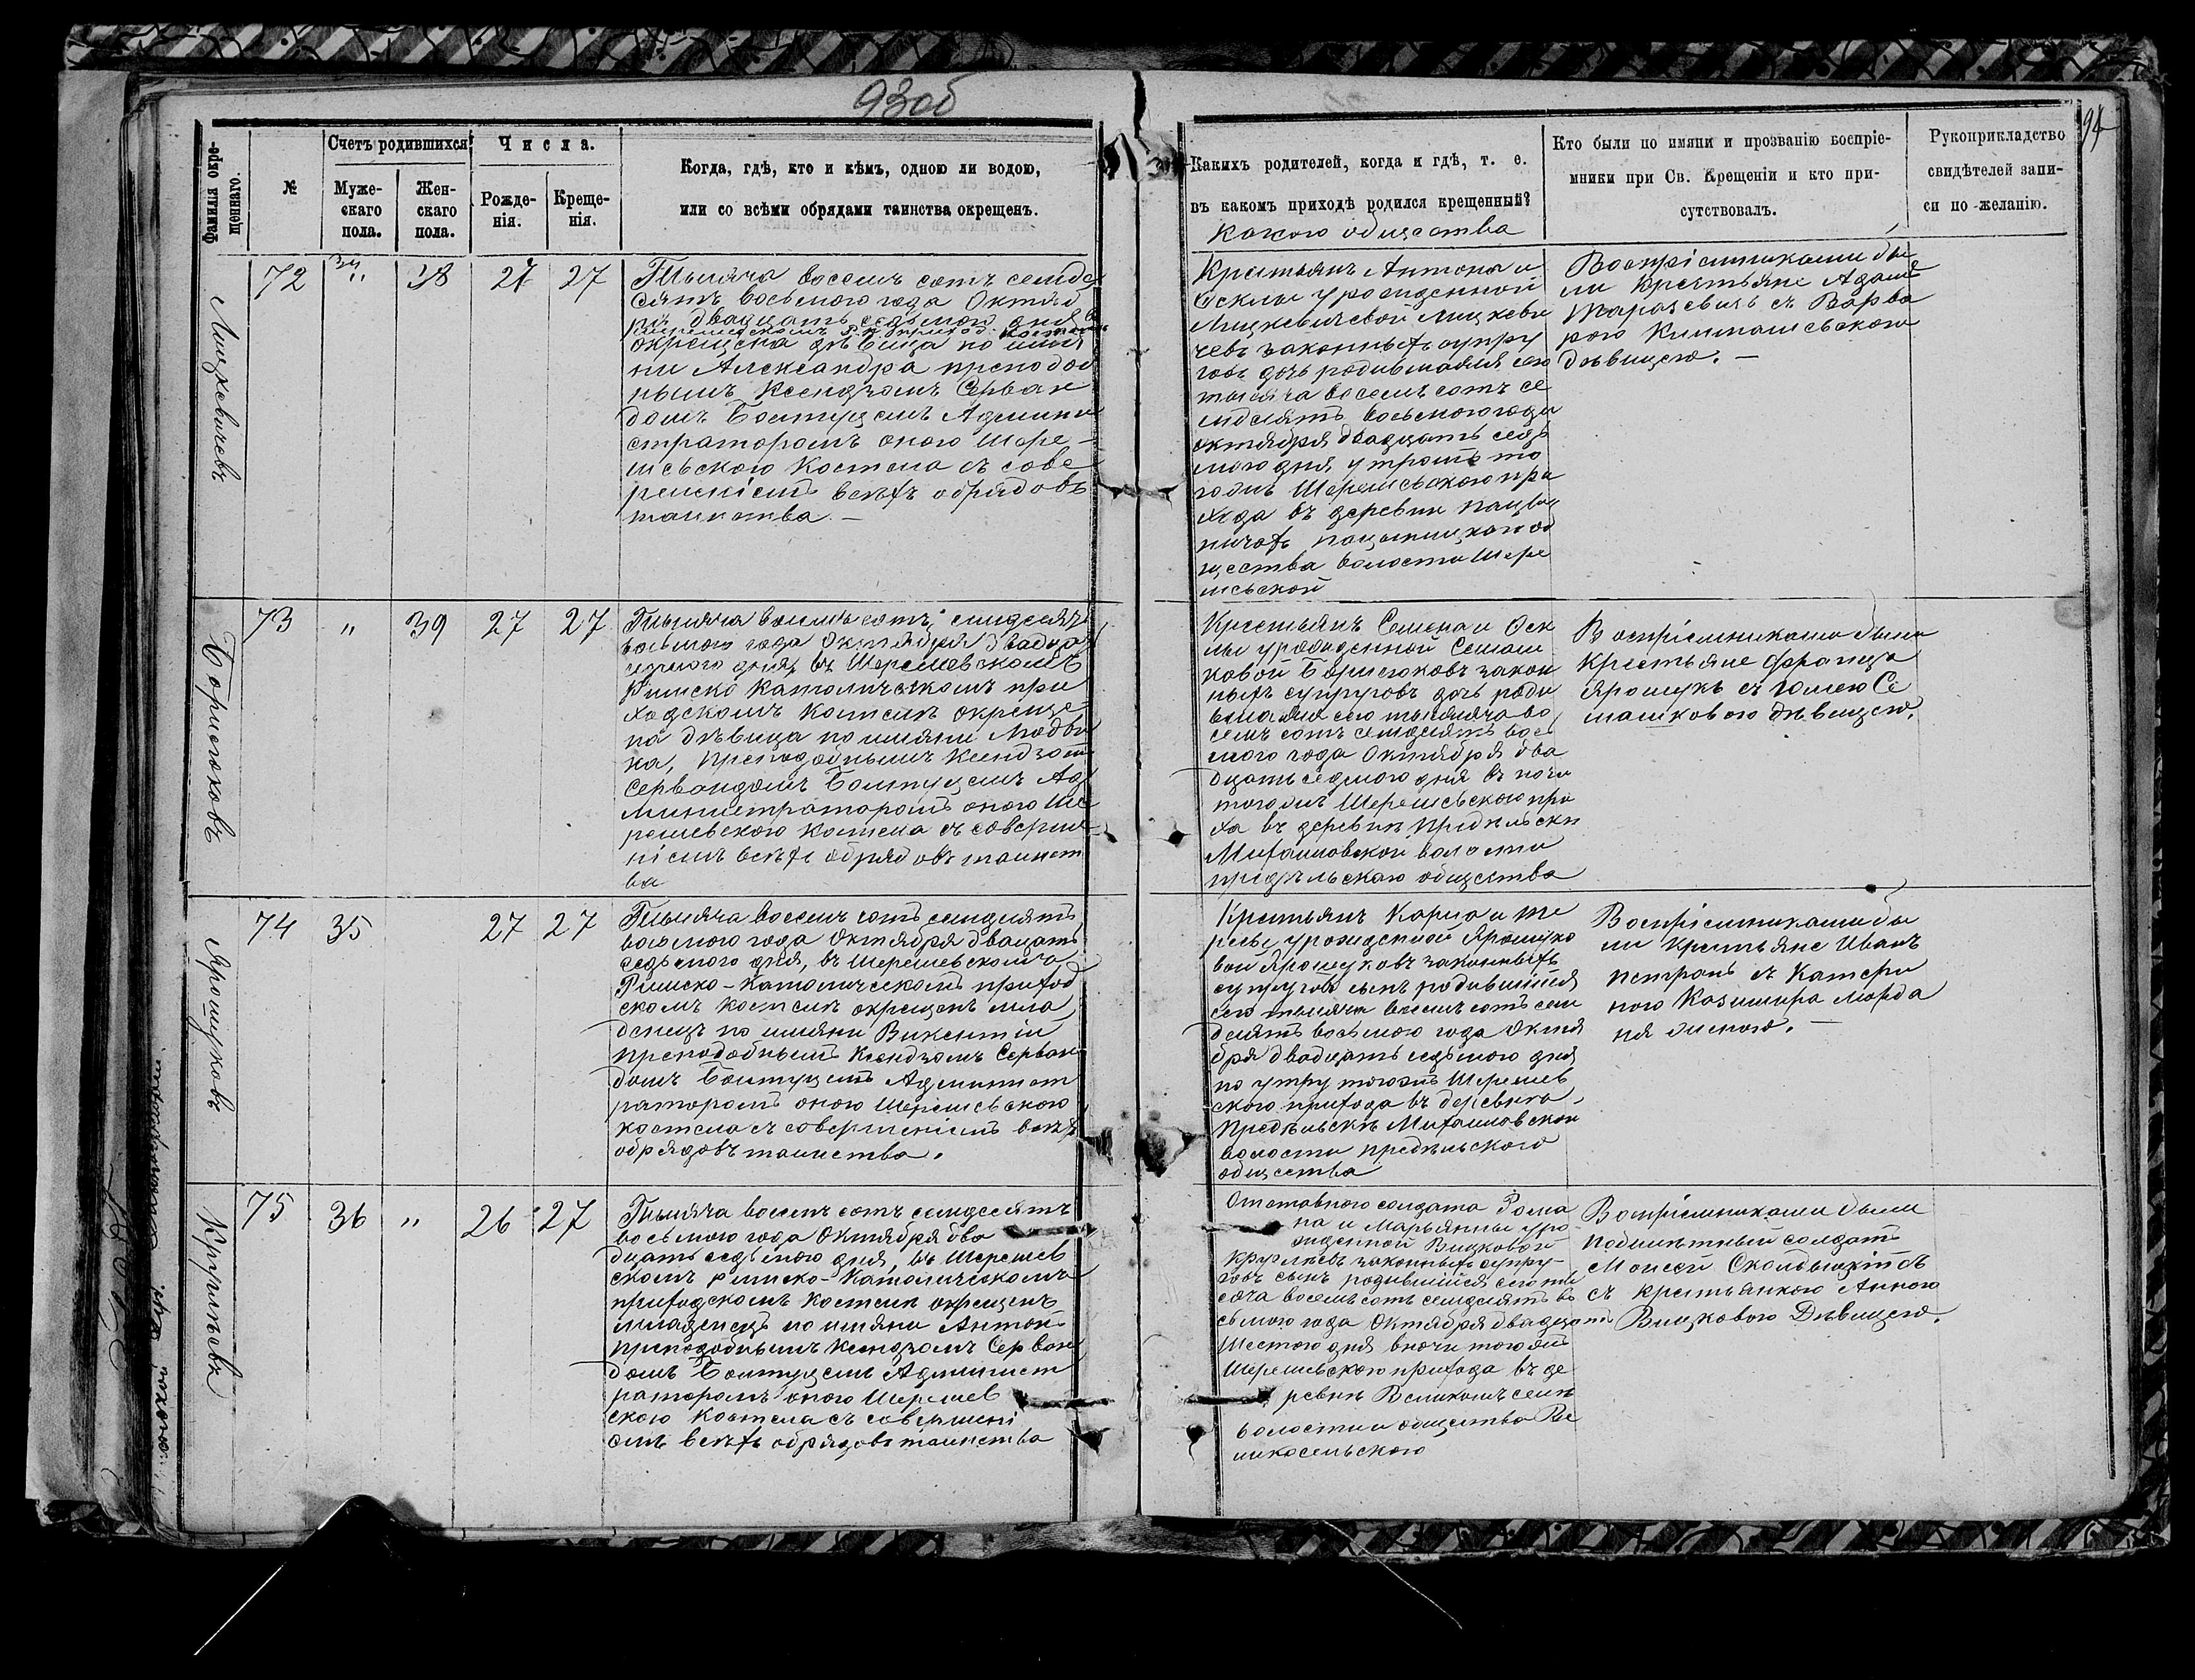 93об
94
Фамилія окре-
щеннаго.
№
Счетъ родившихся
Муже-
скаго
пола.
Жен-
скаго
пола.
Числа.
Рожде-
нія.
Креще-
нія.
Когда, гдѣ, кто и кѣмъ, одною ли водою,
или со всѣми обрядами таинства окрещенъ.
Каких родителей, когда и гдѣ, т. е.
въ какомъ приходѣ родился крещенный?
какого общества
Кто были по имяни и прозванію воспріе-
мники при Св. Крещеніи и кто при-
сутствовалъ.
Рукоприкладство
свидѣтелей запи-
си по желанію.
Мицкевичевъ
72
34 "
38
27
27
Тысяча восемь сотъ семьде
сятъ восьмого года Октяб
ря двадцать седьмого дня въ
окрещена дѣвица по имя
ни Александра преподоб
нымъ Ксендзомъ Серван
домъ Болтуцемъ Админи
страторомъ оного Шере-
шевского Костела съ сове
ршеніемъ всѣхъ обрядовъ
таинства. —
Крестьянъ Антона и
урожденной
Мицкевичевой Мицкеви
чевъ законныхъ супру
говъ дочь родившаяся сего
тысяча восемь сотъ се
мдесятъ восьмого года
октября двадцать седь
мого дня утромъ то
гожъ Шерешевского при
хода въ деревни
об
щества волости Шере
шевской
Воспріемниками бы
ли крестьяне Адамъ
Тарасевичъ съ Варва
рою Климашевскою
дѣвицею. —
Борисюковъ
73
"
39
27
27
Тысяча восемь сотъ семдесятъ
восьмого года Октября двадцать
седмого дня, въ Шерешевскомъ
Римско Католическомъ при
ходскомъ костелѣ окреще
на дѣвица по имяни Людви
ка, преподобнымъ Ксендзомъ
Сервандомъ Болтуцемъ Ад
министраторомъ оного Ше
решевского Костела съ соверше
ніемъ всѣхъ обрядовъ таинст
ва
Крестьянъ Семена и Оек
лы урожденной Семаш
ковой Борисюковъ закон
ныхъ супруговъ дочь роди
вшаяся сего тысяча во
семь сотъ семдесятъ вось
мого года Октября два
дцать седмого дня въ ночи
тогожъ Шерешевского при
ха въ деревни Предѣльски
Михаиловской волости
предѣльскаго общества
Воспріемниками были
Крестьяне Францъ
Ярошукъ съ Юліею Се
машковою дѣвицею.
Ярошуковъ
74
35
27
27
Тысяча восемь сотъ семдесятъ
восьмого года Октября двацать
седьмого дня, въ Шерешевскомъ
Римско-Католическомъ приход
скомъ костелѣ окрещенъ мла
денецъ по имяни Викентій
преподобнымъ Ксендзомъ Серван
домъ Болтуцемъ Админист
раторомъ оного Шерешевского
костела съ совершеніемъ всѣхъ
обрядовъ таинства.
Крестьянъ Карла и Те
ресы урожденной Ярошуко
вой Ярошуковъ законныхъ
супруговъ сынъ родившійся
сего тысяча восемь сотъ сем
десятъ восьмого года Октя
бря двадцать седьмого дня
по утру тогожъ Шерешев
ского прихода въ деревни
Предѣльскѣ Михаиловской
волости предѣльского
общества
Воспріемниками бы
ли крестьяне Иванъ
Петрашъ съ Катери
ною Казимира Морда
ня женою. —
Крулевъ
75
36
"
26
27
Тысяча восемь сотъ семдесятъ
восьмого года Октября два
дцать седьмого дня, въ Шерешев
скомъ римско-Католическомъ
приходскомъ Костелѣ окрещенъ
младенецъ по имяни Антонъ
преподобнымъ Ксендзомъ Серван
домъ Болтуцемъ Админист
раторомъ оного Шерешев
ского Костела съ совершені
емъ всѣхъ обрядовъ таинства
Отставного солдата Рома
на и Марьянны уро
жденной Вицковой
законныхъ супру-
говъ сынъ родившійся сего ты
сяча восемь сотъ семдесятъ во
сьмого года Октября двадцать
шестого дня вночи тогожъ
Шерешевского прихода въ де
ревнѣ Великомъ селѣ
волости и общества Ве
ликосельского
Воспріемниками были
солдатъ
Моисей
съ крестьянкою Анною
Вицковою Дѣвицею.